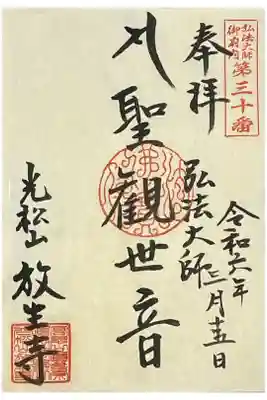 弘法大師
御府内
第三十番
奉拝
令和六年三月十五日
弘法大師
聖観世音
光松山 放生寺